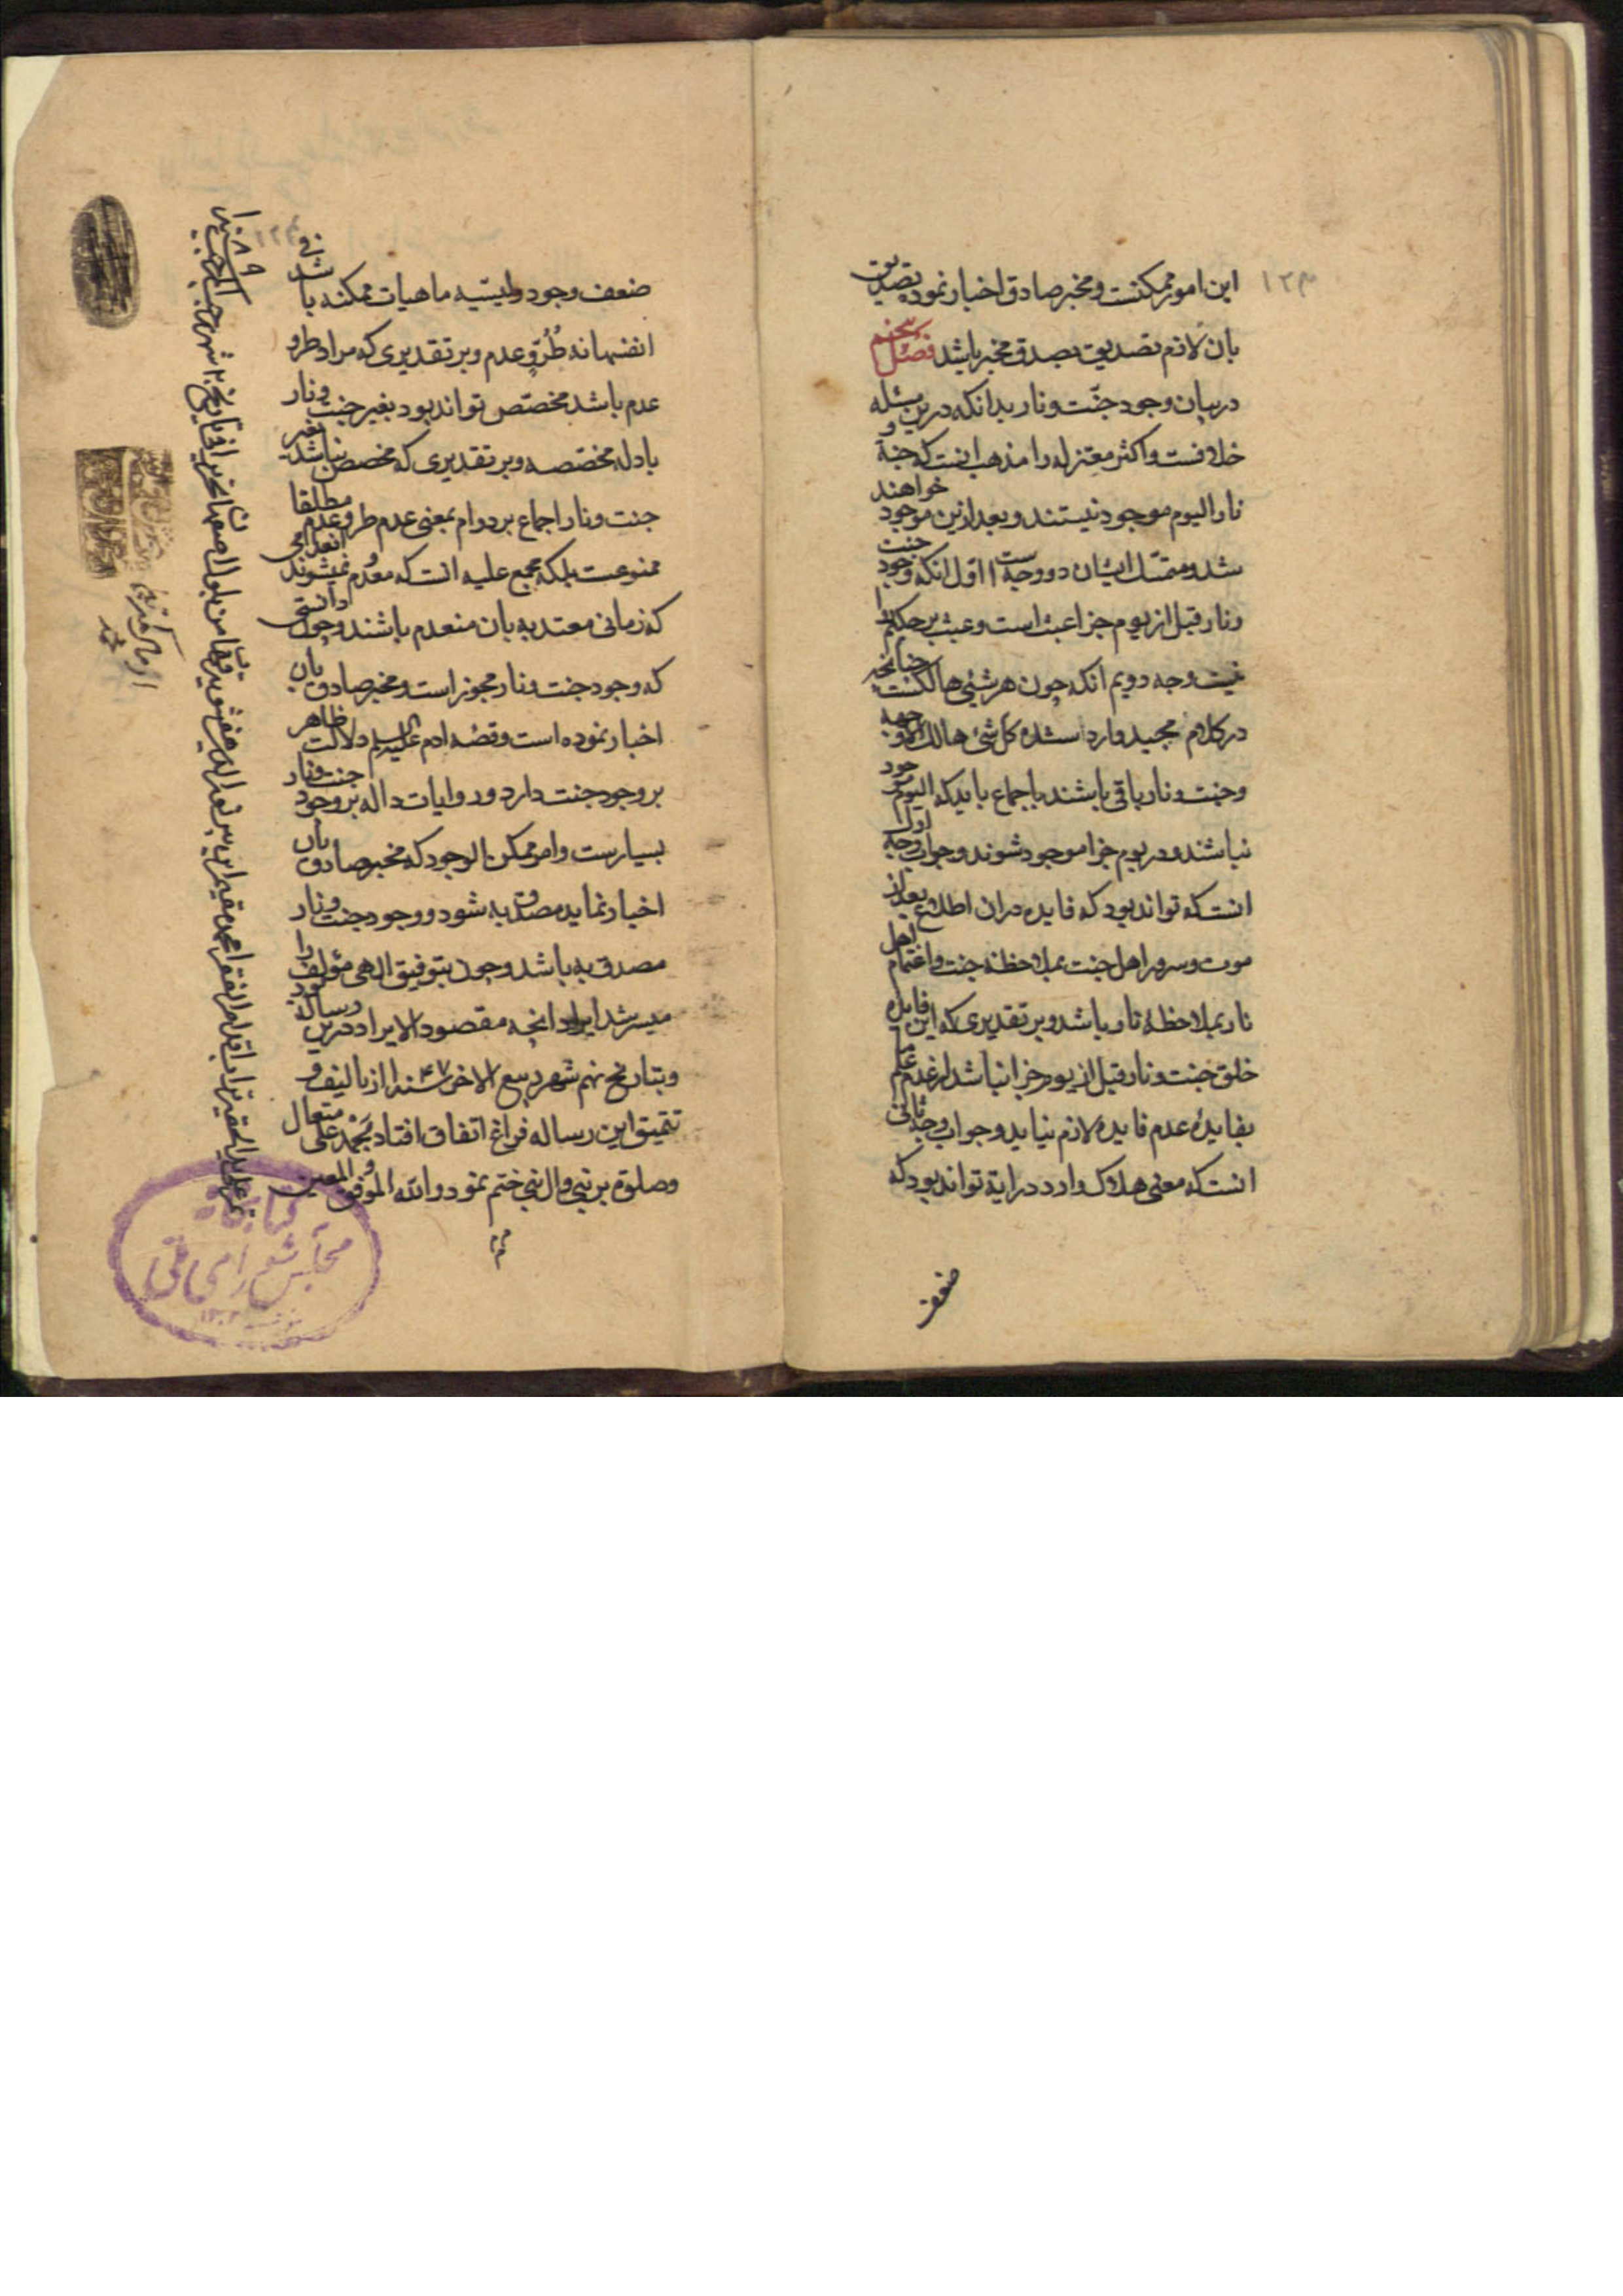 ۱۲۳
این امور ممکنست و مخبر صادق اخبار نموده تصدیق
بان لازم تصدیق بصدق مخبر باشد فصل پنجم
در بیان وجود جنّت و نار بدانکه درین مسئله
خلافست و اکثر معتزله را مذهب انست که جنة و
نار الیوم موجود نیستند و بعد ازین موجود خواهند
شد و متمسّک ایشان دو وجه است اول انکه وجود جنت
و نار قبل از یوم جزا عبث است و عبث بر حکیم روا
نیست وجه دویم انکه چون هر شیٔ هالکست چنانچه
در کلام مجید وارد شده کل شیٔ هالک الا وجهه
و جنت و نار باقی باشند باجماع باید که الیوم موجود
نباشند و در یوم جزا موجود شوند و جواب وجه اول
انست که تواند بود که فایده دران اطلاع بعد از
موت و سرور اهل جنت بملاحظه جنت و اغتمام اهل
نار بملاحظهٔ نار باشد و بر تقدیری که این فایده
خلق جنت و نار قبل از یوم جزا نباشد از عدم علم
بفایده عدم فایده لازم نیاید و جواب وجه ثانی
انست که معنی هلاک وارد در ایة تواند بود که
ضعف
ضعف وجود و لیسیه ماهیات ممکنه باشد فی
انفسها نه طُرُوِّ عدم و بر تقدیری که مراد طرو
عدم باشد مخصّص تواند بود بغیر جنت و نار
بادله مخصّصه و بر تقدیری که مخصص نباشد بغیر
جنت و نار اجماع بر دوام بمعنی عدم طرو عدم مطلقا
ممنوعست بلکه مجمع علیه انست که معدم نمیشوند انعدامی
که زمانی معتد به بان منعدم باشند و چون دانستی
که وجود جنت و نار مجوز است و مخبر صادق بان
اخبار نموده است و قصّه ادم علیه السلم دلالت ظاهر
بر وجود جنت دارد و روایات داله بر وجود جنت و نار
بسیارست و امر ممکن الوجود که مخبر صادق بان
اخبار نماید مصدق به شود و وجود جنت و نار
مصدق به باشد و چون بتوفیق الهی مؤلف را
میسر شد ایراد انچه مقصود الایراد درین رساله بود
و بتاریخ نهم شهر ربیع الاخر سنه ۱۰۴۷ از تالیف و
تنمیق این رساله فراغ اتفاق افتاد بحمد علی متعال
و صلوة بر نبی و ال نبی ختم نمود و الله الموفق و المعین
کتابخانه
مجلس شورای ملی